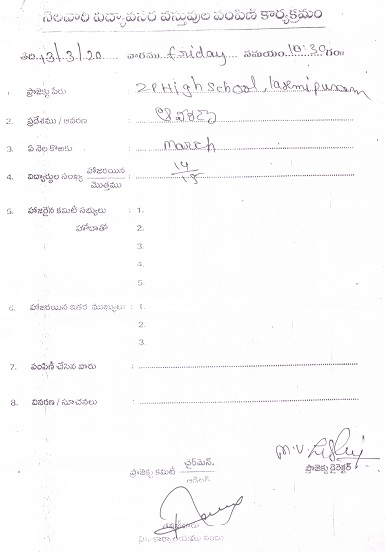 నెలవారి విద్యావసర వస్తువుల పంపిణి కార్యక్రమం
తేది 13/3/20 వారము friday సమయం 10:30 గం
1. ప్రాజెక్టు పేరు : ZP High School, laxmipuram
2. ప్రదేశము / ఆవరణ :
3. ఏ నెల కొఱకు : march
4. విద్యార్థుల సంఖ్య హాజరయిన / మొత్తము : 14 / 15
5. హాజరైన కమిటీ సభ్యులు : 1.
హోదాతో 2.
3.
4.
5.
6. హాజరయిన ఇతర ముఖ్యులు : 1.
2.
3.
7. పంపిణీ చేసిన వారు :
8. వివరణ / సూచనలు :
ప్రాజెక్టు కమిటీ ఛైర్మెన్.
ప్రాజెక్టు డైరెక్టర్